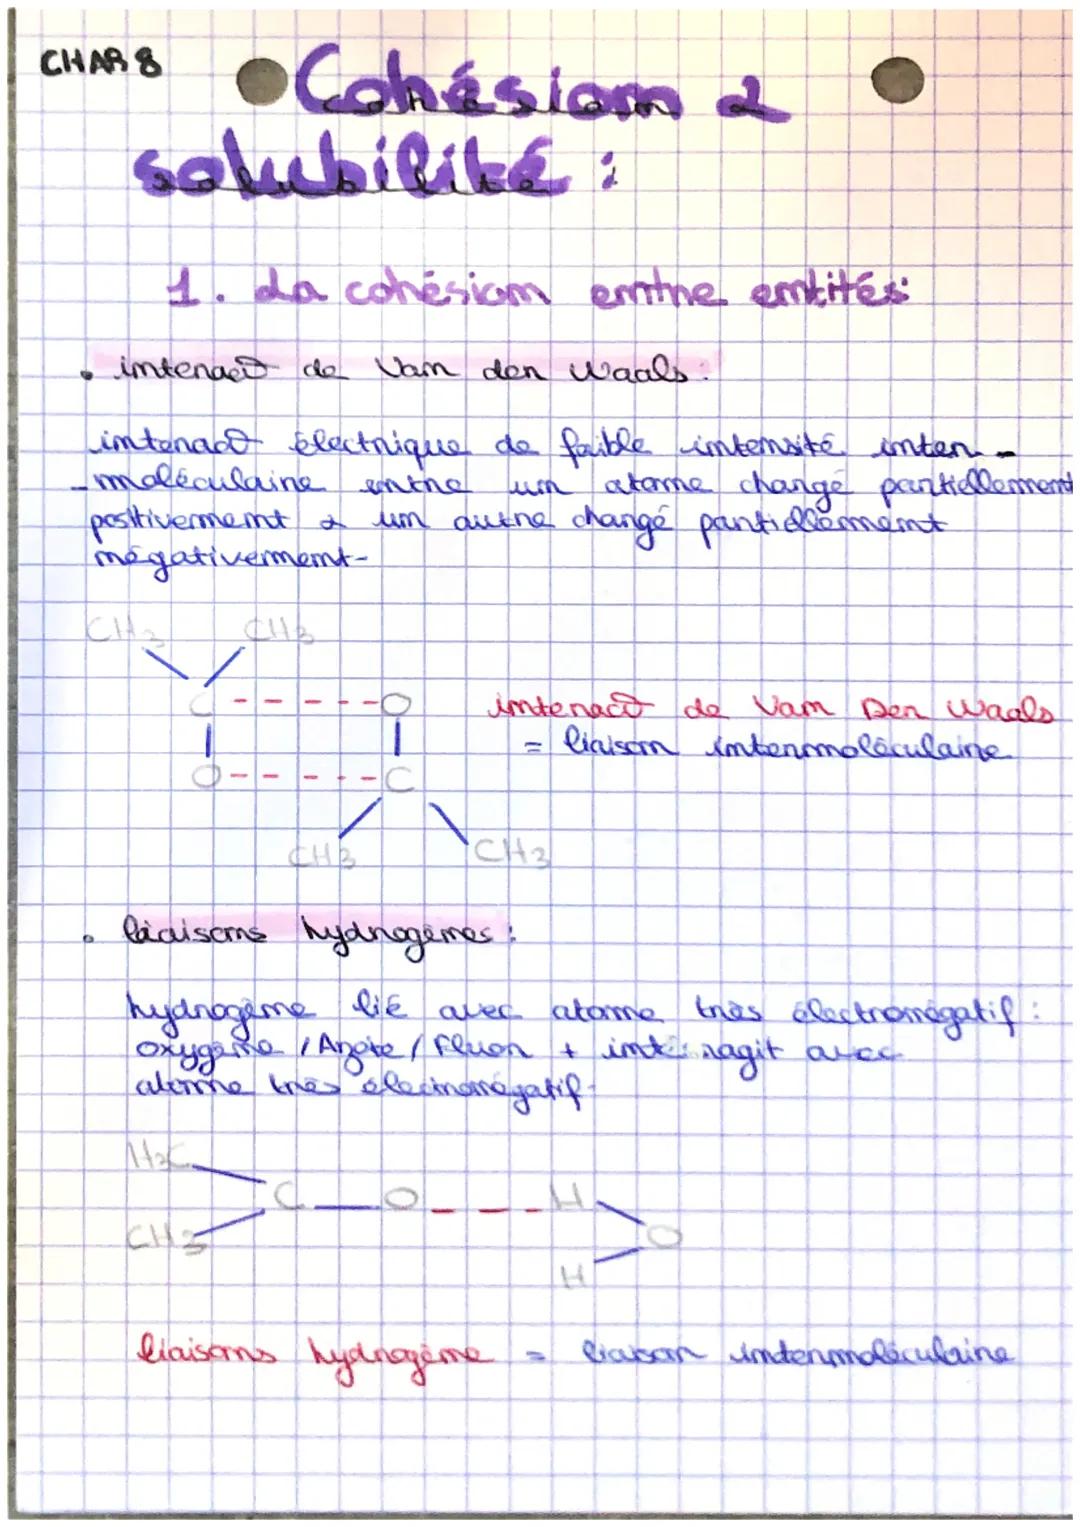 CHAP 8
Cohésion &
solubilité :
1. La cohésion entre entités:
• interact° de Van der Waals :
interact° électrique de faible intensité inter-
-moléculaire entre un atome chargé partiellement
positivement & un autre chargé partiellement
négativement-
CH3 CH3
C - - - - - - O
O - - - - - - C
interact° de Van Der Waals
= liaison intermoléculaire
CH3 CH3
• liaisons hydrogènes :
hydrogène lié avec atome très électronégatif :
oxygène / Azote / Fluor + interagit avec
atome très électronégatif-
H3C
C O - - - H
CH3 O
H
liaisons hydrogène = liaison intermoléculaire